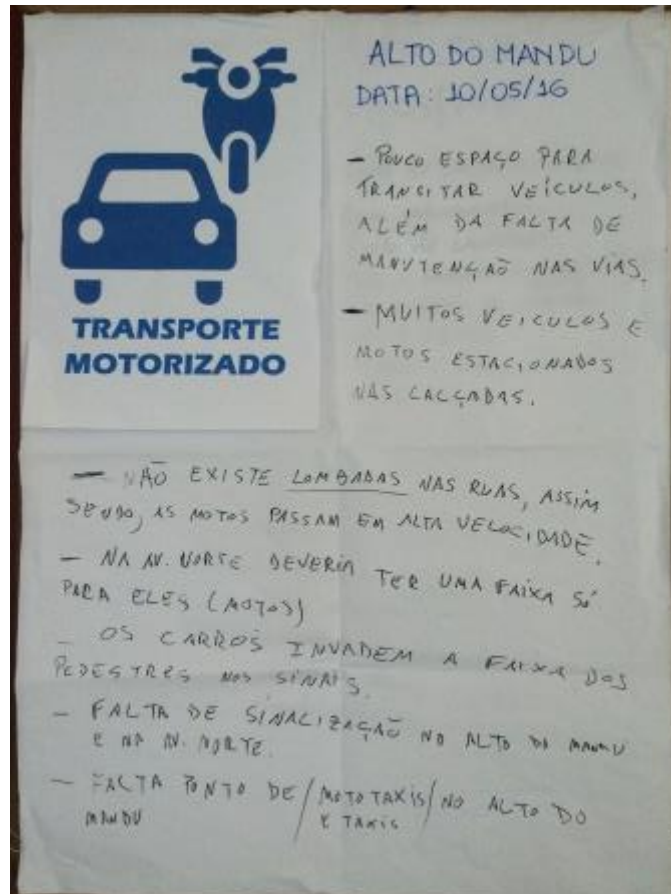 TRANSPORTE
MOTORIZADO
ALTO DO MANDU
DATA: 10/05/16
- POUCO ESPAÇO PARA
TRANSITAR VEÍCULOS,
ALÉM DA FALTA DE
MANUTENÇÃO NAS VIAS.
- MUITOS VEICULOS E
MOTOS ESTACIONADOS
NAS CALÇADAS.
- NÃO EXISTE LOMBADAS NAS RUAS, ASSIM
SENDO, AS MOTOS PASSAM EM ALTA VELOCIDADE.
- NA AV. NORTE DEVERIA TER UMA FAIXA SÓ
PARA ELES (MOTOS)
- OS CARROS INVADEM A FAIXA DOS
PEDESTRES NOS SINAIS.
- FALTA DE SINALIZAÇÃO NO ALTO DO MANDU
E NA AV. NORTE.
- FALTA PONTO DE / MOTOTAXIS / NO ALTO DO
MANDU E TAXIS